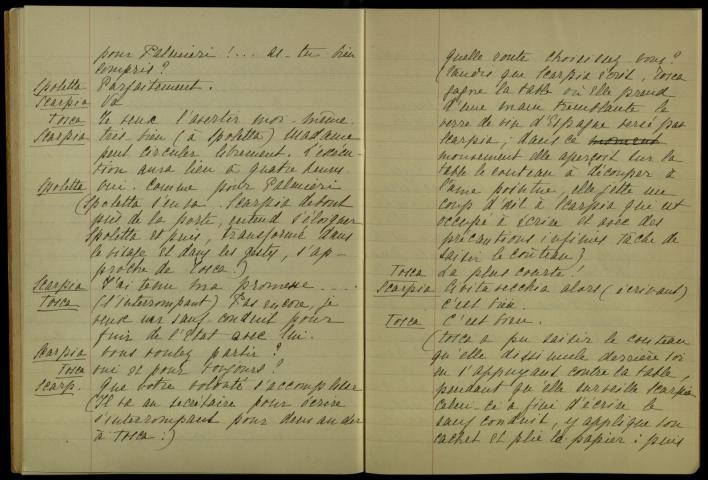 pour Palmieri !... as-tu bien
compris ?
Spoletta Parfaitement.
Scarpia Va
Tosca Je veux l'avertir moi-même.
Scarpia très bien (à Spoletta) Madame
peut circuler librement. L'exécu-
tion aura lieu à quatre heures
Spoletta oui. comme pour Palmieri
(Spoletta s'en va. Scarpia debout
près de la porte, entend s'éloigner
Spoletta et puis, transformé dans
le visage et dans les gestes, s'ap-
proche de Tosca.)
Scarpia J'ai tenu ma promesse ....
Tosca (l'interrompant) Pas encore, je
veux un sauf conduit pour
fuir de l'Etat avec lui.
Scarpia vous voulez partir ?
Tosca oui et pour toujours ?
Scarp. Que votre volonté s'accomplisse
(Il va au secrétaire pour écrire
s'interrompant pour demander
à Tosca :)
quelle route choisissez-vous ?
(tandis que Scarpia écrit, Tosca
gagne la table où elle prend
d'une main tremblante le
verre de vin d'Espagne versé par
Scarpia ; dans ce moment
mouvement elle aperçoit sur la
table le couteau à découper à
lame pointue, elle jette un
coup d'œil à Scarpia qui est
occupé à écrire et avec des
précautions infinies tâche de
saisir le couteau)
Tosca La plus courte !
Scarpia Civita vecchia alors (écrivant)
c'est bien.
Tosca C'est bien.
(Tosca a pu saisir le couteau
qu'elle dissimule derrière soi
en s'appuyant contre la table,
pendant qu'elle surveille Scarpia
celui-ci a fini d'écrire le
sauf conduit, y applique son
cachet et plie le papier : puis